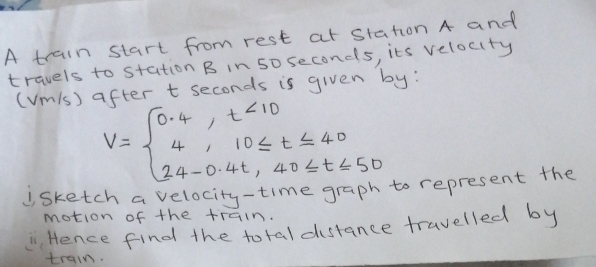 A train start from rest at station A and
travels to station B in 50 seconds, its velocity
(vm/s) after t seconds is given by:
V= { 0.4 , t<10
4 , 10≤t≤40
24-0.4t, 40≤t≤50
i, sketch a velocity-time graph to represent the
motion of the train.
ii, Hence find the total distance travelled by
train.